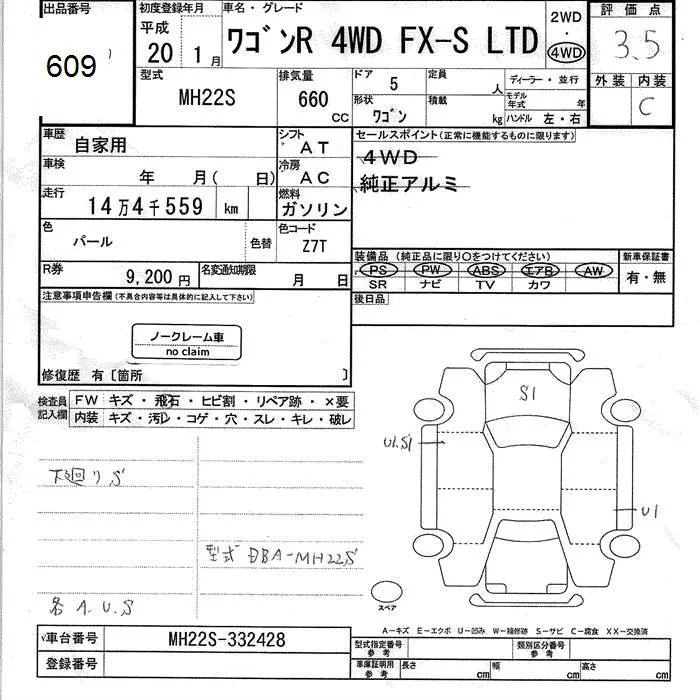 出品番号 初度登録年月 車名・グレード 評価点
609 平成 20 1月 ワゴンR 4WD FX-S LTD 2WD ・ 4WD 3.5
型式 排気量 ドア 5 定員 人 ディーラー・並行 外装 内装
MH22S 660 CC 形状 ワゴン 積載 kg モデル年式 年 C
ハンドル 左・右
車歴 自家用 シフト AT セールスポイント(正常に機能するものに限ります)
車検 年 月( 日) 冷房 AC 4WD
走行 14万4千559 km 燃料 ガソリン 純正アルミ
色 パール 色替 色コード Z7T
装備品 (純正品に限り○をつけてください) 新車保証書
R券 9,200円 名変通知期限 月 日 PS PW ABS エアB AW 有・無
SR ナビ TV カワ
注意事項申告欄(不具合内容等は具体的に記入して下さい) 後日品
ノークレーム車
no claim
修復歴 有〔箇所 〕
検査員記入欄 FW キズ・飛石・ヒビ割・リペア跡・×要
内装 キズ・汚レ・コゲ・穴・スレ・キレ・破レ
S1
U1.S1
下廻りS
U1
型式 DBA-MH22S
各A.U.S
スペア
A-キズ E-エクボ U-凹み W-補修跡 S-サビ C-腐食 XX-交換済
√車台番号 MH22S-332428 型式指定番号 参考 類別区分番号 参考
登録番号 車庫証明用 参考 長さ cm 幅 cm 高さ cm